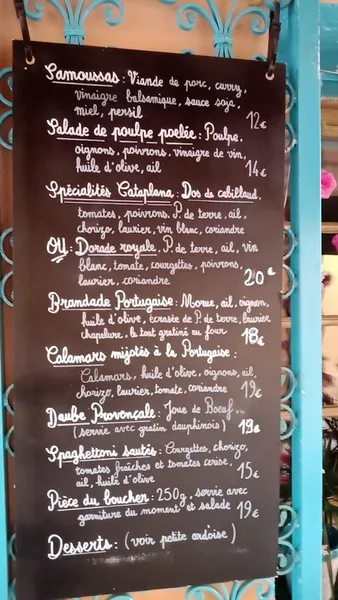 Samoussas : Viande de porc, curry,
vinaigre balsamique, sauce soja,
miel, persil 12€
Salade de poulpe poelée : Poulpe,
oignons, poivrons, vinaigre de vin,
huile d'olive, ail 14€
Spécialités Cataplana : Dos de cabillaud,
tomates, poivrons, P. de terre, ail,
chorizo, laurier, vin blanc, coriandre
OU : Dorade royale, P. de terre, ail, vin
blanc, tomate, courgettes, poivrons,
laurier, coriandre 20€
Brandade Portugaise : Morue, ail, oignon,
huile d'olive, écrasée de P. de terre, laurier
chapelure, le tout gratiné au four 18€
Calamars mijotés à la Portugaise :
Calamars, huile d'olive, oignons, ail,
chorizo, laurier, tomate, coriandre 19€
Daube Provençale : Joue de Boeuf..
(servie avec gratin dauphinois) 19€
Spaghettoni sautés : Courgettes, chorizo,
tomates fraîches et tomates cerise,
ail, huile d'olive 15€
Pièce du boucher : 250g, servie avec
garniture du moment et salade 19€
Desserts : (voir petite ardoise)